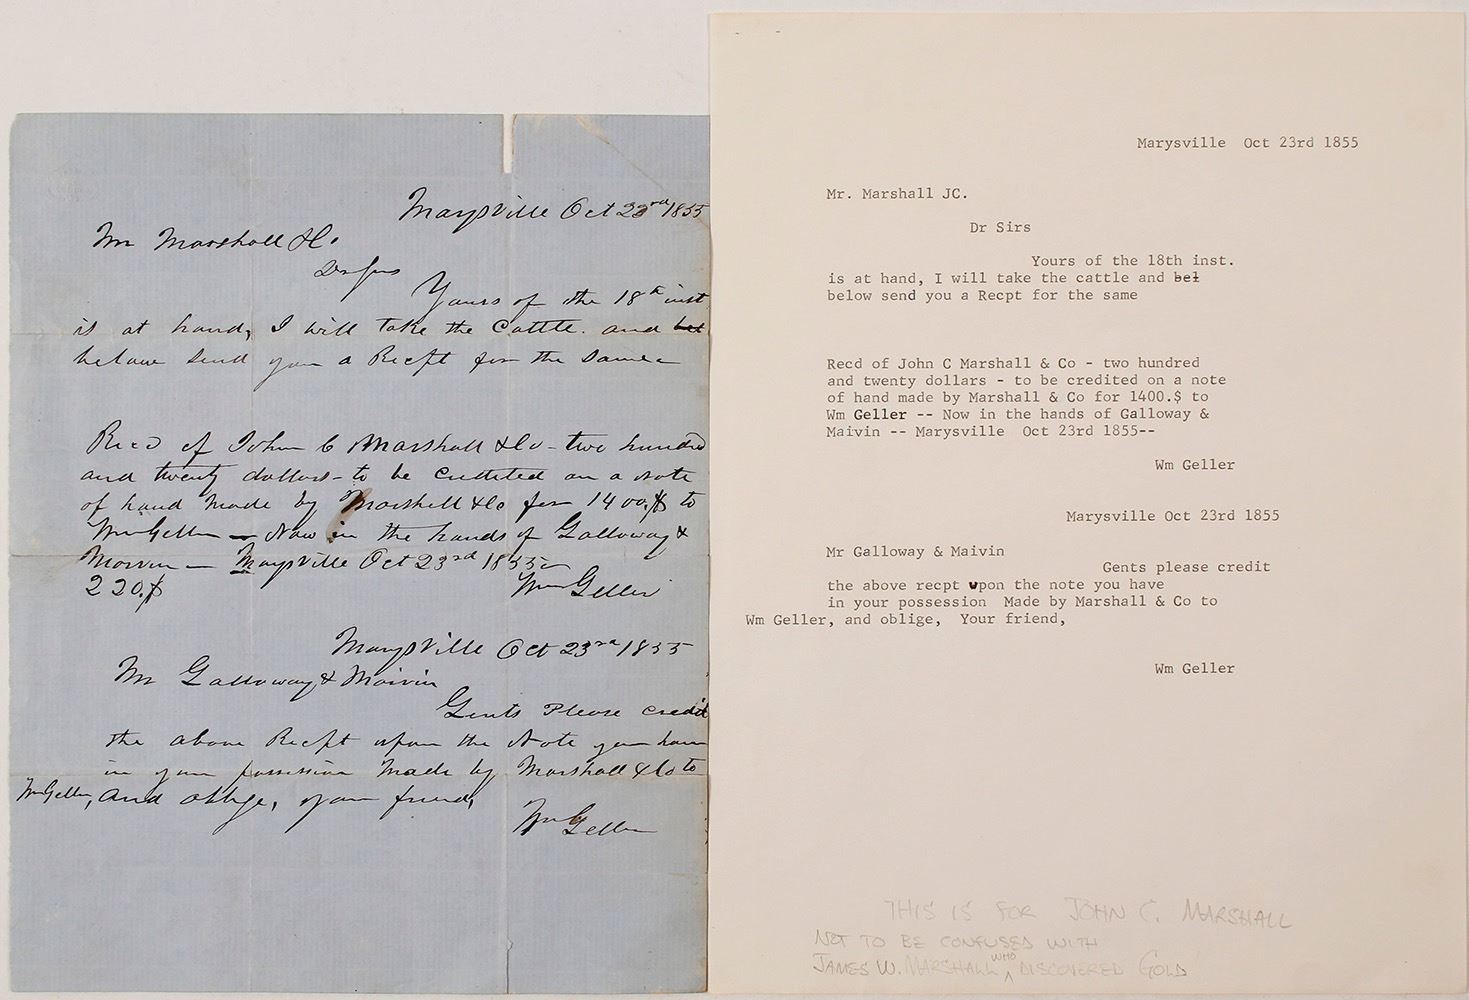 Marysville Oct 23rd 1855
Mr Marshall & Co
Dr Sirs
Yours of the 18th inst
is at hand, I will take the Cattle. and bel
below send you a Recpt for the Same
Recd of John C Marshall & Co - two hundred
and twenty dollars - to be credited on a note
of hand made by Marshall & Co for 1400.$ to
Wm Geller — Now in the hands of Galloway &
Maivin — Marysville Oct 23rd 1855
220.$
Wm Geller
Marysville Oct 23rd 1855
Mr Galloway & Maivin
Gents Please credit
the above Recpt upon the Note you have
in your possession Made by Marshall & Co to
Wm Geller, and oblige, your friend,
Wm Geller
Marysville Oct 23rd 1855
Mr. Marshall JC.
Dr Sirs
Yours of the 18th inst.
is at hand, I will take the cattle and bel
below send you a Recpt for the same
Recd of John C Marshall & Co - two hundred
and twenty dollars - to be credited on a note
of hand made by Marshall & Co for 1400.$ to
Wm Geller -- Now in the hands of Galloway &
Maivin -- Marysville Oct 23rd 1855--
Wm Geller
Marysville Oct 23rd 1855
Mr Galloway & Maivin
Gents please credit
the above recpt upon the note you have
in your possession Made by Marshall & Co to
Wm Geller, and oblige, Your friend,
Wm Geller
THIS IS FOR JOHN C. MARSHALL
NOT TO BE CONFUSED WITH
JAMES W. MARSHALL WHO DISCOVERED GOLD